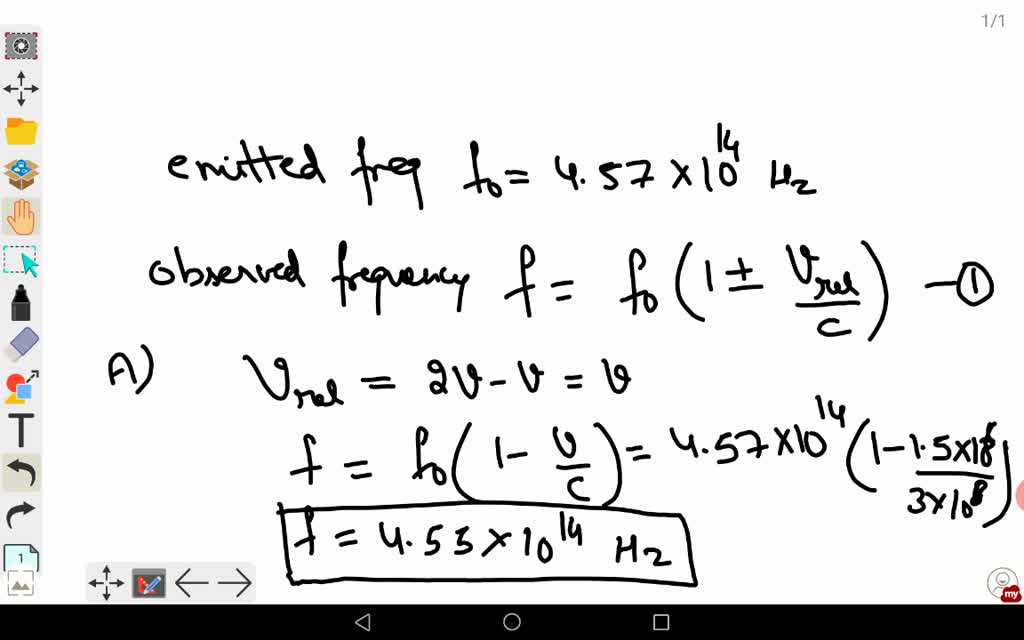 1/1
emitted freq f₀ = 4.57 × 10¹⁴ Hz
observed frequency f = f₀ (1 ± Vrel/c) — ①
A) Vrel = 2v - v = v
f = f₀ (1 - v/c) = 4.57 × 10¹⁴ (1 - 1.5×10⁶/3×10⁸)
f = 4.55 × 10¹⁴ Hz
T
1
my